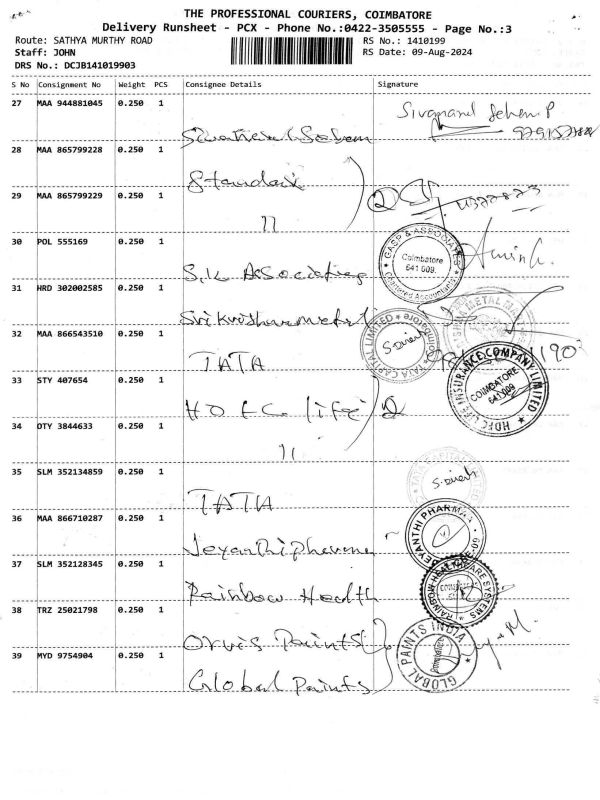 THE PROFESSIONAL COURIERS, COIMBATORE
Delivery Runsheet - PCX - Phone No.:0422-3505555 - Page No.:3
Route: SATHYA MURTHY ROAD
RS No.: 1410199
Staff: JOHN
RS Date: 09-Aug-2024
DRS No.: DCJB141019903
S No Consignment No Weight PCS Consignee Details Signature
27 MAA 944881045 0.250 1
28 MAA 865799228 0.250 1
29 MAA 865799229 0.250 1
11
30 POL 555169 0.250 1
S.K Associates
GASP & ASSOCIATES
Coimbatore
641 009.
Chartered Accountants
31 HRD 302002585 0.250 1
32 MAA 866543510 0.250 1
TATA
TATA CAPITAL LIMITED
Coimbatore
33 STY 407654 0.250 1
HDFC life
HDFC LIFE INSURANCE COMPANY LIMITED
COIMBATORE
641 009
34 OTY 3844633 0.250 1
11
35 SLM 352134859 0.250 1
TATA
36 MAA 866710287 0.250 1
Jeyanthi pharma
JEYANTHI PHARMA
37 SLM 352128345 0.250 1
Rainbow Health
RAINBOW HEALTHCARE SYSTEMS
38 TRZ 25021798 0.250 1
Orvis Paints
39 MYD 9754904 0.250 1
Global Paints
GLOBAL PAINTS INDIA